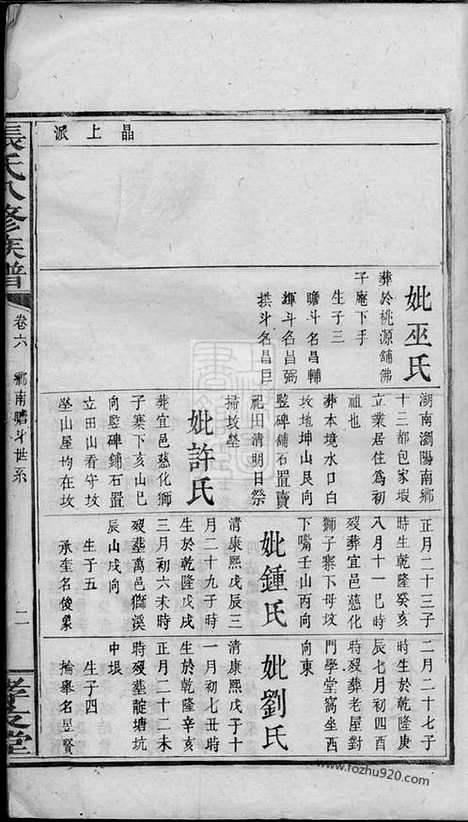 晶上派
妣巫氏
葬於桃源舖佛
子庵下手
生子三
瞻斗名昌輔
輝斗名昌弼
拱斗名昌巨
湖南瀏陽南鄉
十三都包家塅
立業居住爲初
祖也
葬本境水口白
坟地坤山艮向
監碑舖石置賣
祀田清明日祭
掃坟塋
妣許氏
葬宜邑慈化獅
子寨下亥山巳
向監碑鋪石置
立田山看守坟
坐山屋均在坟
正月二十三子
時生於乾隆癸亥
八月十一巳時
歿葬宜邑慈化
獅子寨下母坟
下嘴壬山丙向
妣鍾氏
清康熙戊辰三
月二十九子時
生於乾隆戊戌
三月初六未時
歿葬萬邑獅溪
辰山戌向
生子五
承奎名俊彖
二月二十七子
時生於乾隆庚
辰七月初四酉
時歿葬老屋對
門學堂窩坐西
向東
妣劉氏
清康熙戊子十
一月初七丑時
生於乾隆辛亥
二月二十二未
時歿葬靛塘坑
中垠
生子四
掄舉名昱賢
張氏八修族譜
卷六
鄉南瞻斗世系
二
孝友堂
www.fozhu920.com